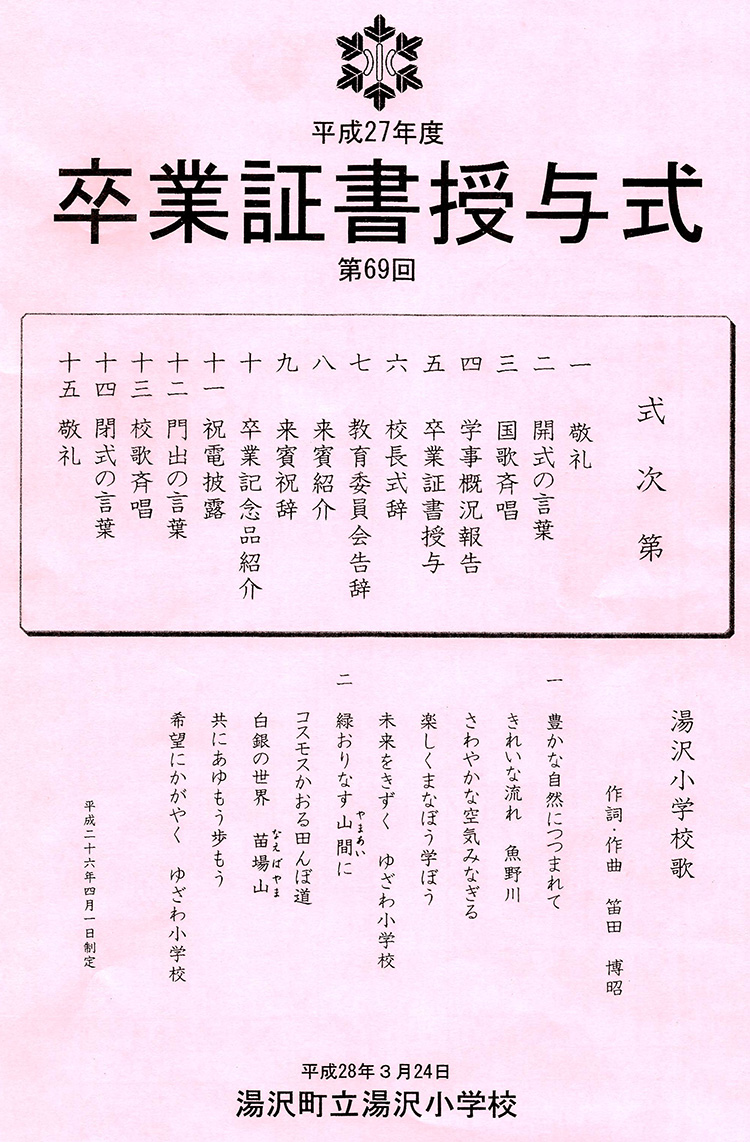 平成27年度
卒業証書授与式
第69回
式次第
一 敬礼
二 開式の言葉
三 国歌斉唱
四 学事概況報告
五 卒業証書授与
六 校長式辞
七 教育委員会告辞
八 来賓紹介
九 来賓祝辞
十 卒業記念品紹介
十一 祝電披露
十二 門出の言葉
十三 校歌斉唱
十四 閉式の言葉
十五 敬礼
湯沢小学校歌
作詞・作曲 笛田 博昭
一 豊かな自然につつまれて
きれいな流れ 魚野川
さわやかな空気みなぎる
楽しくまなぼう学ぼう
未来をきずく ゆざわ小学校
二 緑おりなす山間に
やまあい
コスモスかおる田んぼ道
白銀の世界 苗場山
なえばやま
共にあゆもう歩もう
希望にかがやく ゆざわ小学校
平成二十六年四月一日制定
平成28年3月24日
湯沢町立湯沢小学校